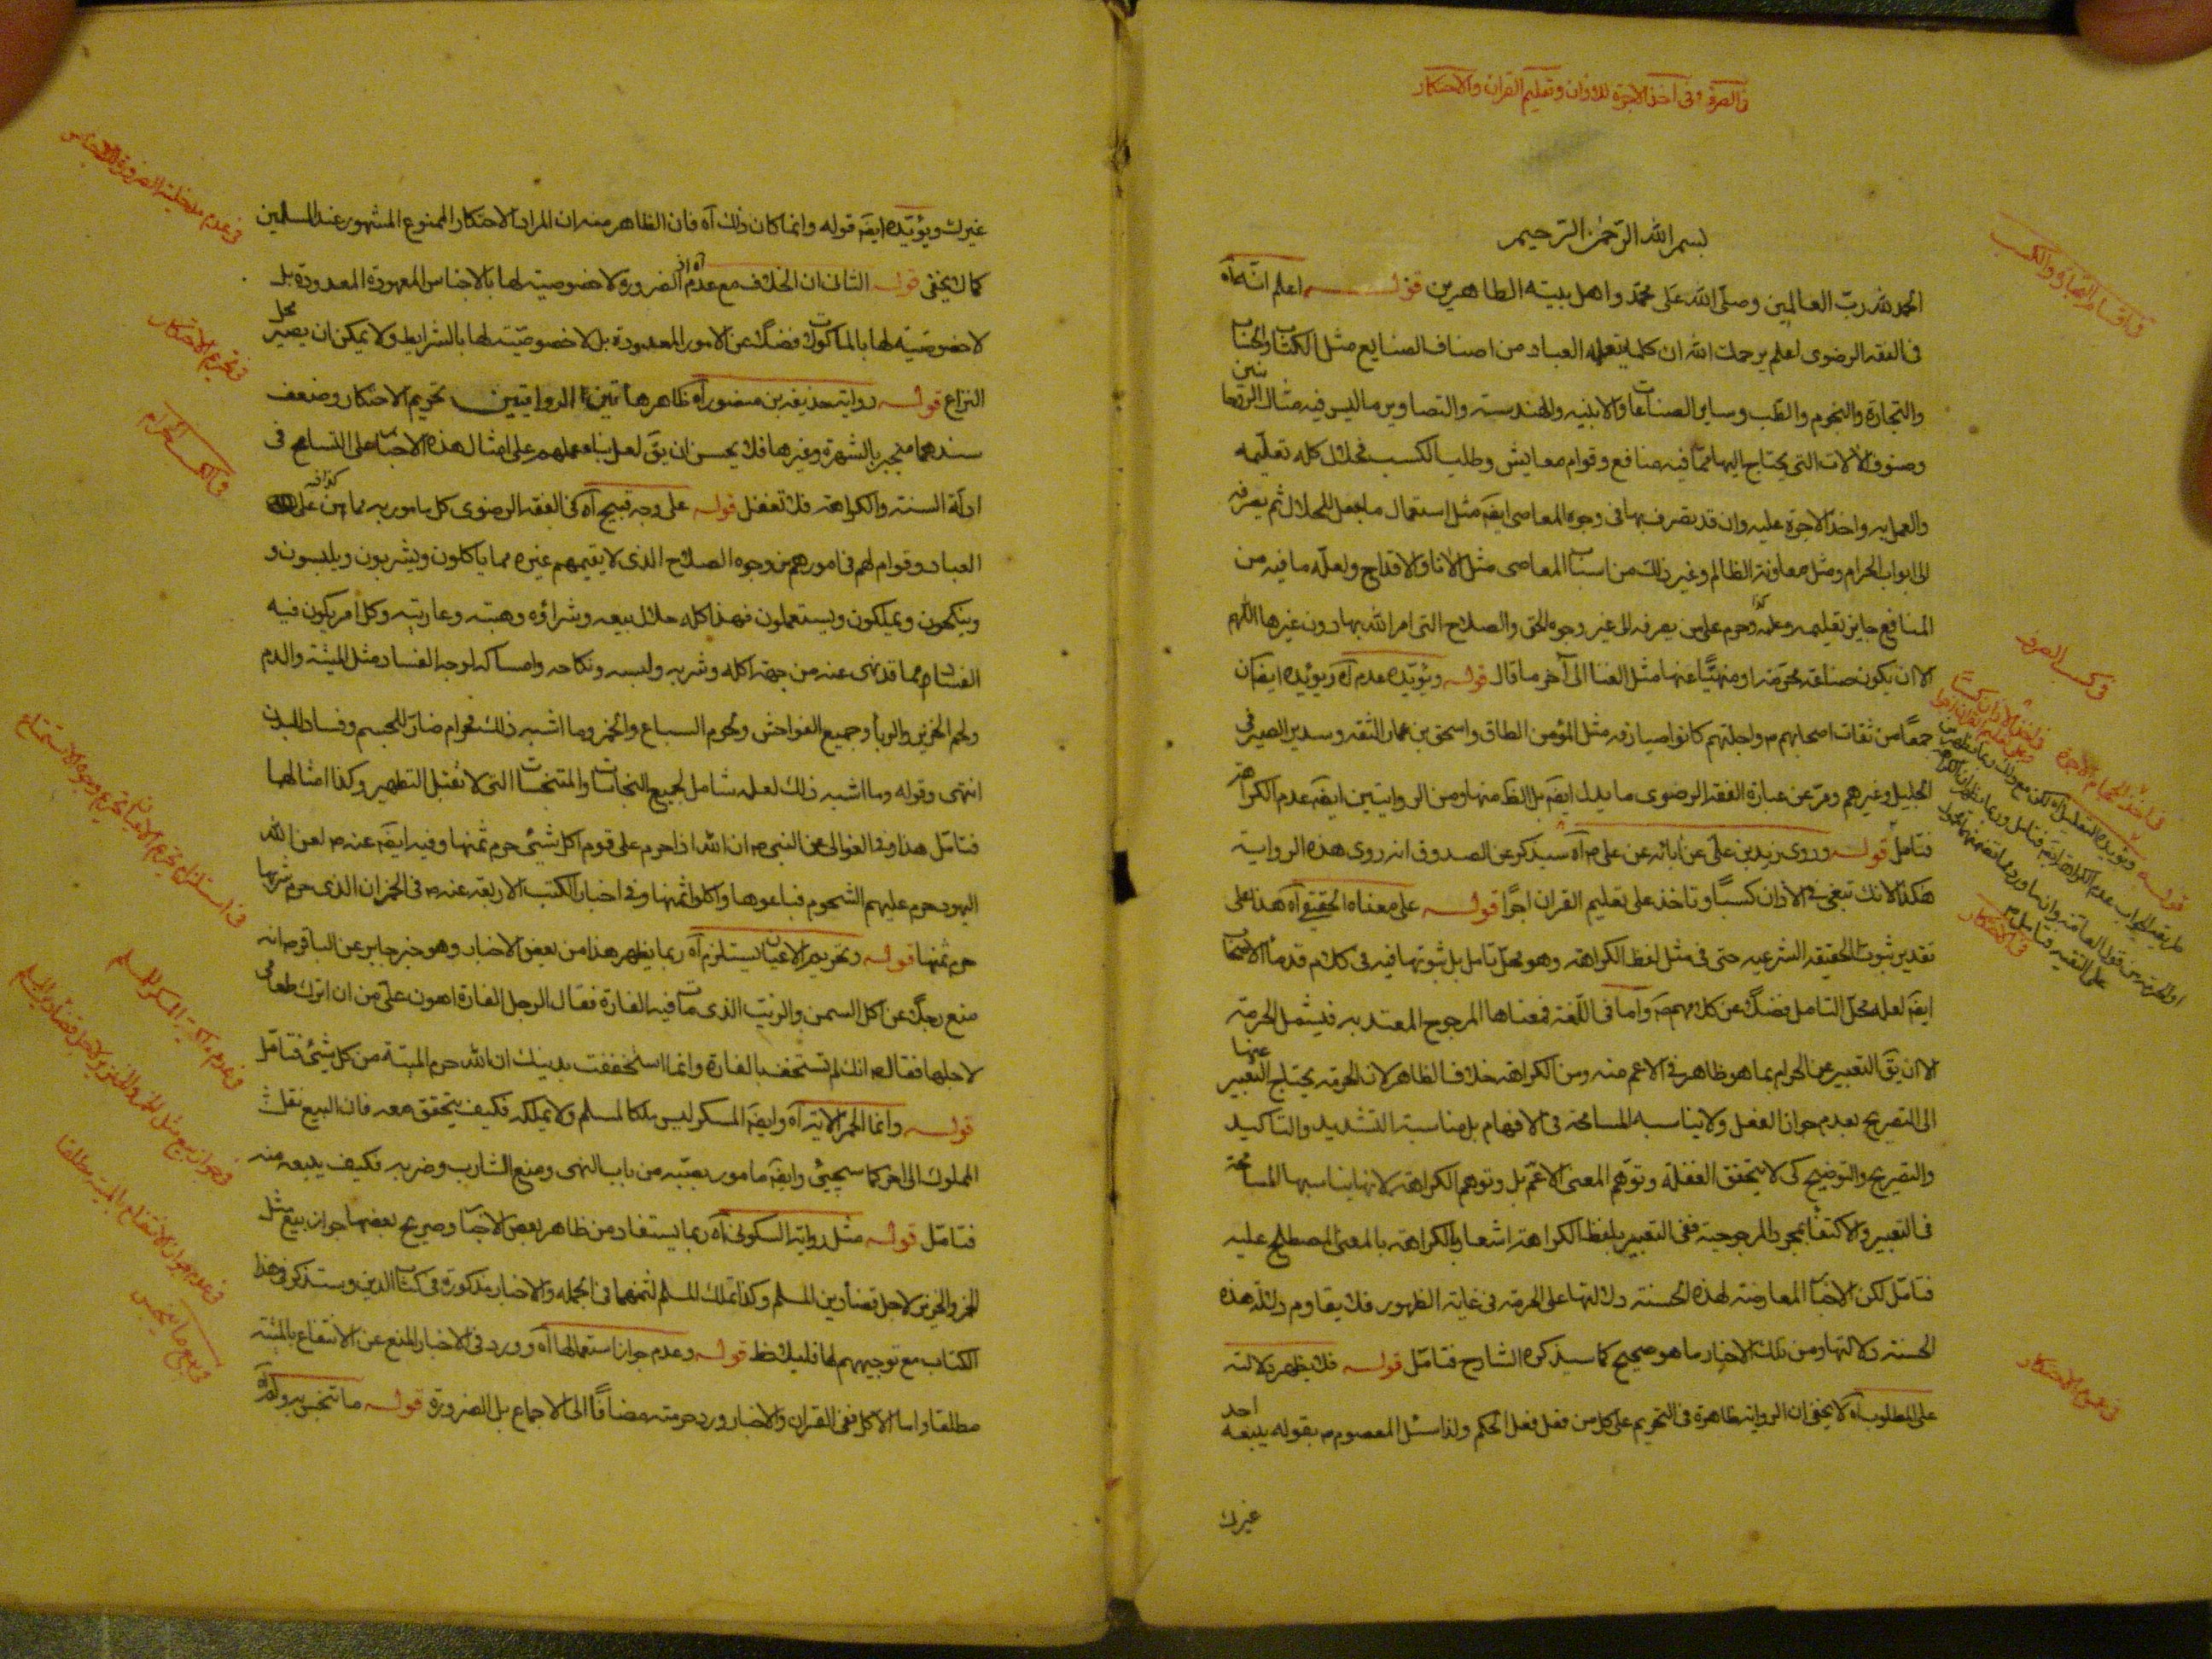 في الصرف وفي اخذ الاجرة للاذان وتعليم القران والاحتكار
بسم الله الرحمن الرحيم
الحمد لله رب العالمين وصلى الله على محمد واهل بيته الطاهرين قوله اعلم انه آه
في الفقه الرضوي اعلم يرحمك الله ان كلما يتعلمه العباد من اصناف الصنايع مثل الكتاب والحساب
والتجارة والنجوم والطب وساير الصناعات والابنيه والهندسته والتصاوير ما ليس فيه مثال الروحانيين
وصنوف الالات التي يحتاج اليها مما فيه منافع وقوام معايش وطلب الكسب فحلال كله تعليمه
والعمل به واخذ الاجرة عليه وان قد تصرف بها في وجوه المعاصي ايضه مثل استعمال ما جعل للحلال ثم يصرفه
الى ابواب الحرام ومثل معاونة الظالم وغير ذلك من اسباب المعاصي مثل الاناء والاقداح ولعله ما فيه من
المنافع جايز تعليمه وعمله وحرم على من يصرفه الى غير وجوه الحق والصلاح التي امر الله بها دون غيرها اللهم
الا ان يكون صناعة محرمة او منهيا عنها مثل الغنا الى آخر ما قال قوله ويؤيده عدم آه ويؤيده ايضه ان
جمعا من ثقات اصحابهم م واجلتهم كانوا صيارفه مثل المؤمن الطاق واسحق بن عمار الثقه وسدير الصيرفي
الجليل وغيرهم ومر عن عبارة الفقه الرضوي ما يدل ايضه بل الظ منها ومن الروايتين ايضه عدم الكراهة
فتامل قوله وروى زيد بن علي عن ابائه عن علي م آه سيذكر عن الصدوق انه روى هذه الرواية
هكذا لانك تبغي في الاذان كسبا وتاخذ على تعليم القران اجرا قوله على معناه الحقيقي آه هذا على
تقدير ثبوت الحقيقه الشرعيه حتى في مثل لفظ الكراهة وهو محل تامل بل ثبوتها فيه في كلام قدماء الاصحاب
ايضه لعله محل التامل فضلا عن كلامهم م واما في اللغة فمعناها المرجوح المعتد به فيشمل الحرمة
الا ان يق التعبير عن الحرام بما هو ظاهر في الاعم منه ومن الكراهة خلاف الظاهر لان الحرمة يحتاج التعبير عنها
الى التصريح بعدم جواز الفعل ولا يناسبه المسامحة في الافهام بل مناسبة التشديد والتاكيد
والتصريح والتوضيح كي لا يتحقق الغفلة وتوهم المعنى الاعم بل وتوهم الكراهة لانها يناسبها المسامحة
في التعبير والاكتفا بمجرد المرجوحية ففي التعبير بلفظ الكراهة اشعار بالكراهة بالمعنى المصطلح عليه
فتامل لكن الاخبار المعارضة لهذه الحسنة دلالتها على الحرمة في غاية الظهور فلا يقاوم دلالة هذه
الحسنة دلالتها ومن تلك الاخبار ما هو صحيح كما سيذكره الشارح فتامل قوله فلا يظهر دلالته
على المطلوب آه لا يخفى ان الرواية ظاهرة في التحريم على كل من فعل فعل الحكم ولذا سئل المعصوم م بقوله يبيعه احد
غيرك
في اقسام الصناعة والكسب
في كسب الصيرفي
في الاحتكار
في عموم الاحتكار
غيرك ويؤيده ايضه قوله وانما كان ذلك آه فان الظاهر منه ان المراد الاحتكار الممنوع المشهور عند المسلمين
كما لا يخفى قوله الثالث ان الخلاف مع عدم الضرورة آه اذ لا خصوصية لها بالاجناس المعهودة المعدودة بل
لا خصوصية لها بالماكولات فضلا عن الامور المعدودة بل لا خصوصية لها بالشرايط ولا يمكن ان يصير محل
النزاع قوله رواية حذيفة بن منصور آه ظاهر هاتين الروايتين تحريم الاحتكار وضعف
سندهما منجبر بالشهرة وغيرها فلا يحسن ان يق لعل بناء عملهم على امثال هذه الاخبار على التسامح في
ادلة السنة والكراهة فلا تغفل قوله على وجه قبيح آه في الفقه الرضوي كل مامور به مما من على كذا فيه
العباد وقوام لهم في امورهم من وجوه الصلاح الذي لا يقيمهم غيره مما ياكلون ويشربون ويلبسون و
وينكحون ويملكون ويستعملون فهذا كله حلال بيعه وشراؤه وهبته وعاريته وكل امر يكون فيه
الفساد مما قد نهى عنه من جهة اكله وشربه ولبسه ونكاحه وامساكه لوجه الفساد مثل الميتة والدم
ولحم الخنزير والربا وجميع الفواحش ولحوم السباع والخمر وما اشبه ذلك فحرام ضار للجسم وفساد للبدن
انتهى وقوله وما اشبه ذلك لعله شامل لجميع النجاسات والمتنجسات التي لا تقبل التطهير وكذا امثالها
فتامل هذا وفي الغوالي عن النبي ص ان الله اذا حرم على قوم اكل شيئ حرم ثمنها وفيه ايضه عنه ص لعن الله
اليهود حرم عليهم الشحوم فباعوها واكلوا ثمنها وفي اخبار الكتب الاربعة عنه ص في الخمر ان الذي حرم شربها
حرم ثمنها قوله وتحريم الاعيان يستلزم آه ربما يظهر هذا من بعض الاخبار وهو خبر جابر عن الباقر م انه
منع رجلا عن اكل السمن والزيت الذي مات فيه الفارة فقال الرجل الفارة اهون علي من ان اترك طعامي
لاجلها فقال م انك لم تستخف بالفارة وانما استخففت بدينك ان الله حرم الميتة من كل شيئ فتامل
قوله وانما الخمر الاية آه وايضه المسكر ليس ملكا لمسلم ولا يملكه فكيف يتحقق بيعه فان البيع نقل
المملوك الى اخر كما سيجيئ وايضه مامور بصبه من باب النهى ومنع الشارب وضربه فكيف يبيعه منه
فتامل قوله مثل رواية السكوني آه ربما يستفاد من ظاهر بعض الاخبار وصريح بعضها جواز بيع مثل
الخمر والخنزير لاجل قضاء دين المسلم وكذا تملك المسلم لثمنهما في الجملة والاخبار مذكورة في كتاب الدين وستذكر في هذا
الكتاب مع توجيههم لها فليلاحظ قوله وعدم جواز استعمالها آه وورد في الاخبار المنع عن الانتفاع بالميتة
مطلقا واما الاكل ففي القران والاخبار ورد حرمته مضافا الى الاجماع بل الضرورة قوله ما تنجس به
في تحريم الاحتكار
في الكسب الحرام
في عدم ملكية المسكر للمسلم
في عدم جواز الانتفاع بالميتة مطلقا
في بيع ما ينجس